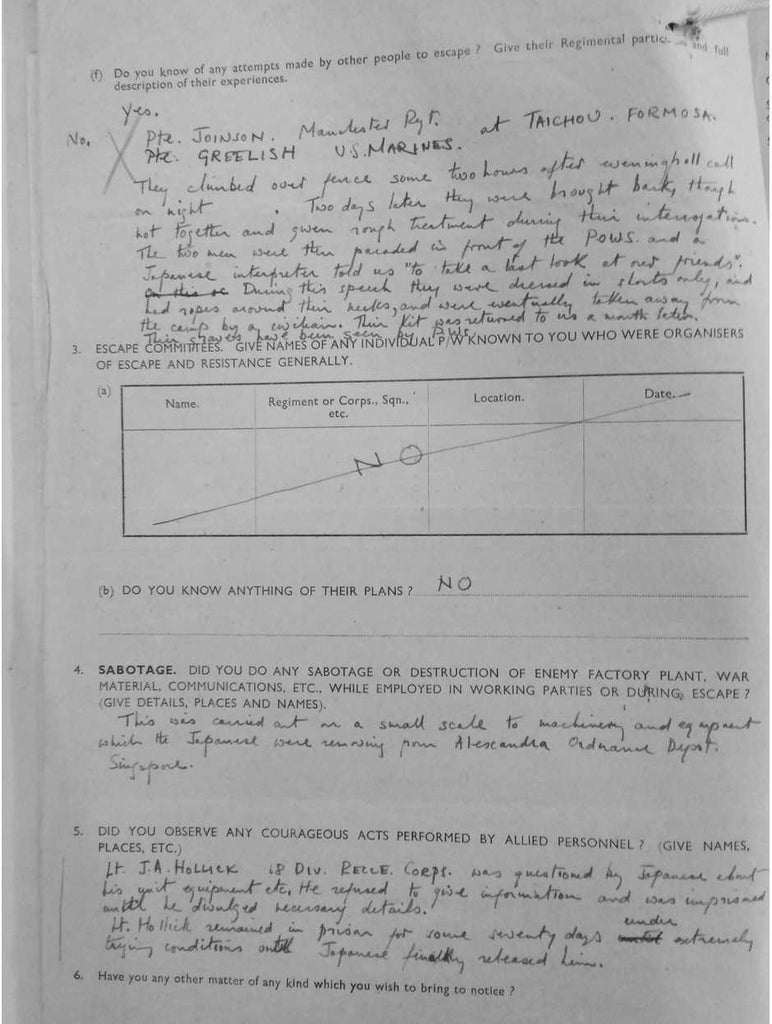 (f) Do you know of any attempts made by other people to escape ? Give their Regimental and full
description of their experiences.
Yes.
No. Pte. JOINSON. Manchester Rgt. at TAICHOU. FORMOSA.
Pte. GREELISH U.S. MARINES.
They climbed over fence some two hours after evening roll call
on night . Two days later they were brought back, though
not together and given rough treatment during their interrogation.
The two men were then paraded in front of the POWS. and a
Japanese interpreter told us "to take a last look at our friends".
During this speech they were dressed in shorts only, and
had ropes around their necks, and were eventually taken away from
the camp by a civilian. Their kit was returned to us a month later.
Their graves have been seen by P.W.
3. ESCAPE COMMITTEES. GIVE NAMES OF ANY INDIVIDUAL P/W KNOWN TO YOU WHO WERE ORGANISERS
OF ESCAPE AND RESISTANCE GENERALLY.
(a)
Name. Regiment or Corps., Sqn., Location. Date.
etc.
NO
(b) DO YOU KNOW ANYTHING OF THEIR PLANS ? NO
4. SABOTAGE. DID YOU DO ANY SABOTAGE OR DESTRUCTION OF ENEMY FACTORY PLANT, WAR
MATERIAL, COMMUNICATIONS, ETC., WHILE EMPLOYED IN WORKING PARTIES OR DURING ESCAPE ?
(GIVE DETAILS, PLACES AND NAMES).
This was carried out on a small scale to machinery and equipment
which the Japanese were removing from Alexandra Ordnance Depot.
Singapore.
5. DID YOU OBSERVE ANY COURAGEOUS ACTS PERFORMED BY ALLIED PERSONNEL ? (GIVE NAMES,
PLACES, ETC.)
Lt. J.A. HOLLICK 18 DIV. RECCE. CORPS. was questioned by Japanese about
his unit equipment etc. He refused to give information and was imprisoned
until he divulged necessary details.
Lt. Hollick remained in prison for some seventy days under extremely
trying conditions until Japanese finally released him.
6. Have you any other matter of any kind which you wish to bring to notice ?